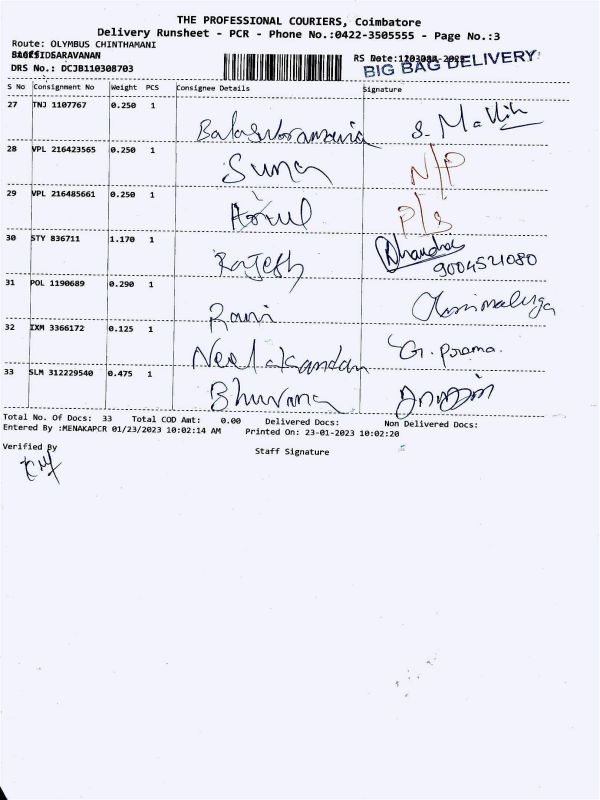 THE PROFESSIONAL COURIERS, Coimbatore
Delivery Runsheet - PCR - Phone No.:0422-3505555 - Page No.:3
Route: OLYMBUS CHINTHAMANI
SARAVANAN
RS Date:
BIG BAG DELIVERY
DRS No.: DCJB110308703
S No Consignment No Weight PCS Consignee Details Signature
27 TNJ 1107767 0.250 1 Balasubramania S. Mallik
28 VPL 216423565 0.250 1 Suna N/P
29 VPL 216485661 0.250 1 P/s
30 STY 836711 1.170 1 Rajesh Dhandra
9004521080
31 POL 1190689 0.290 1 Rani
32 IXM 3366172 0.125 1 Neelakandan G. Prema
33 SLM 312229540 0.475 1 Bhuvana
Total No. Of Docs: 33 Total COD Amt: 0.00 Delivered Docs: Non Delivered Docs:
Entered By :MENAKAPCR 01/23/2023 10:02:14 AM Printed On: 23-01-2023 10:02:20
Verified By
Staff Signature